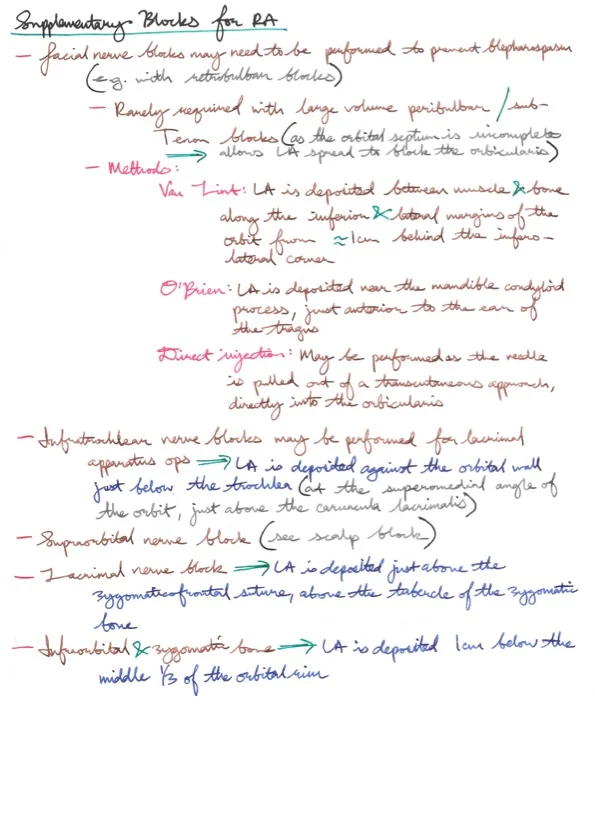 Supplementary Blocks for RA
— Facial nerve blocks may need to be performed to prevent blepharospasm
(e.g. with retrobulbar blocks)
— Rarely required with large volume peribulbar / sub-
Tenon blocks (as the orbital septum is incomplete
⟹ allows LA spread to block the orbicularis)
— Methods:
Van Lint: LA is deposited between muscle & bone
along the inferior & lateral margins of the
orbit from ≈ 1cm behind the infero-
lateral corner
O'Brien: LA is deposited near the mandible condyloid
process, just anterior to the ear of
the tragus
Direct injection: May be performed as the needle
is pulled out of a transcutaneous approach,
directly into the orbicularis
— Infratrochlear nerve blocks may be performed for lacrimal
apparatus ops ⟹ LA is deposited against the orbital wall
just below the trochlea (at the superomedial angle of
the orbit, just above the caruncula lacrimalis)
— Supraorbital nerve block (see scalp block)
— Lacrimal nerve block ⟹ LA is deposited just above the
zygomaticofrontal suture, above the tubercle of the zygomatic
bone
— Infraorbital & zygomatic bone ⟹ LA is deposited 1cm below the
middle 1/3 of the orbital rim